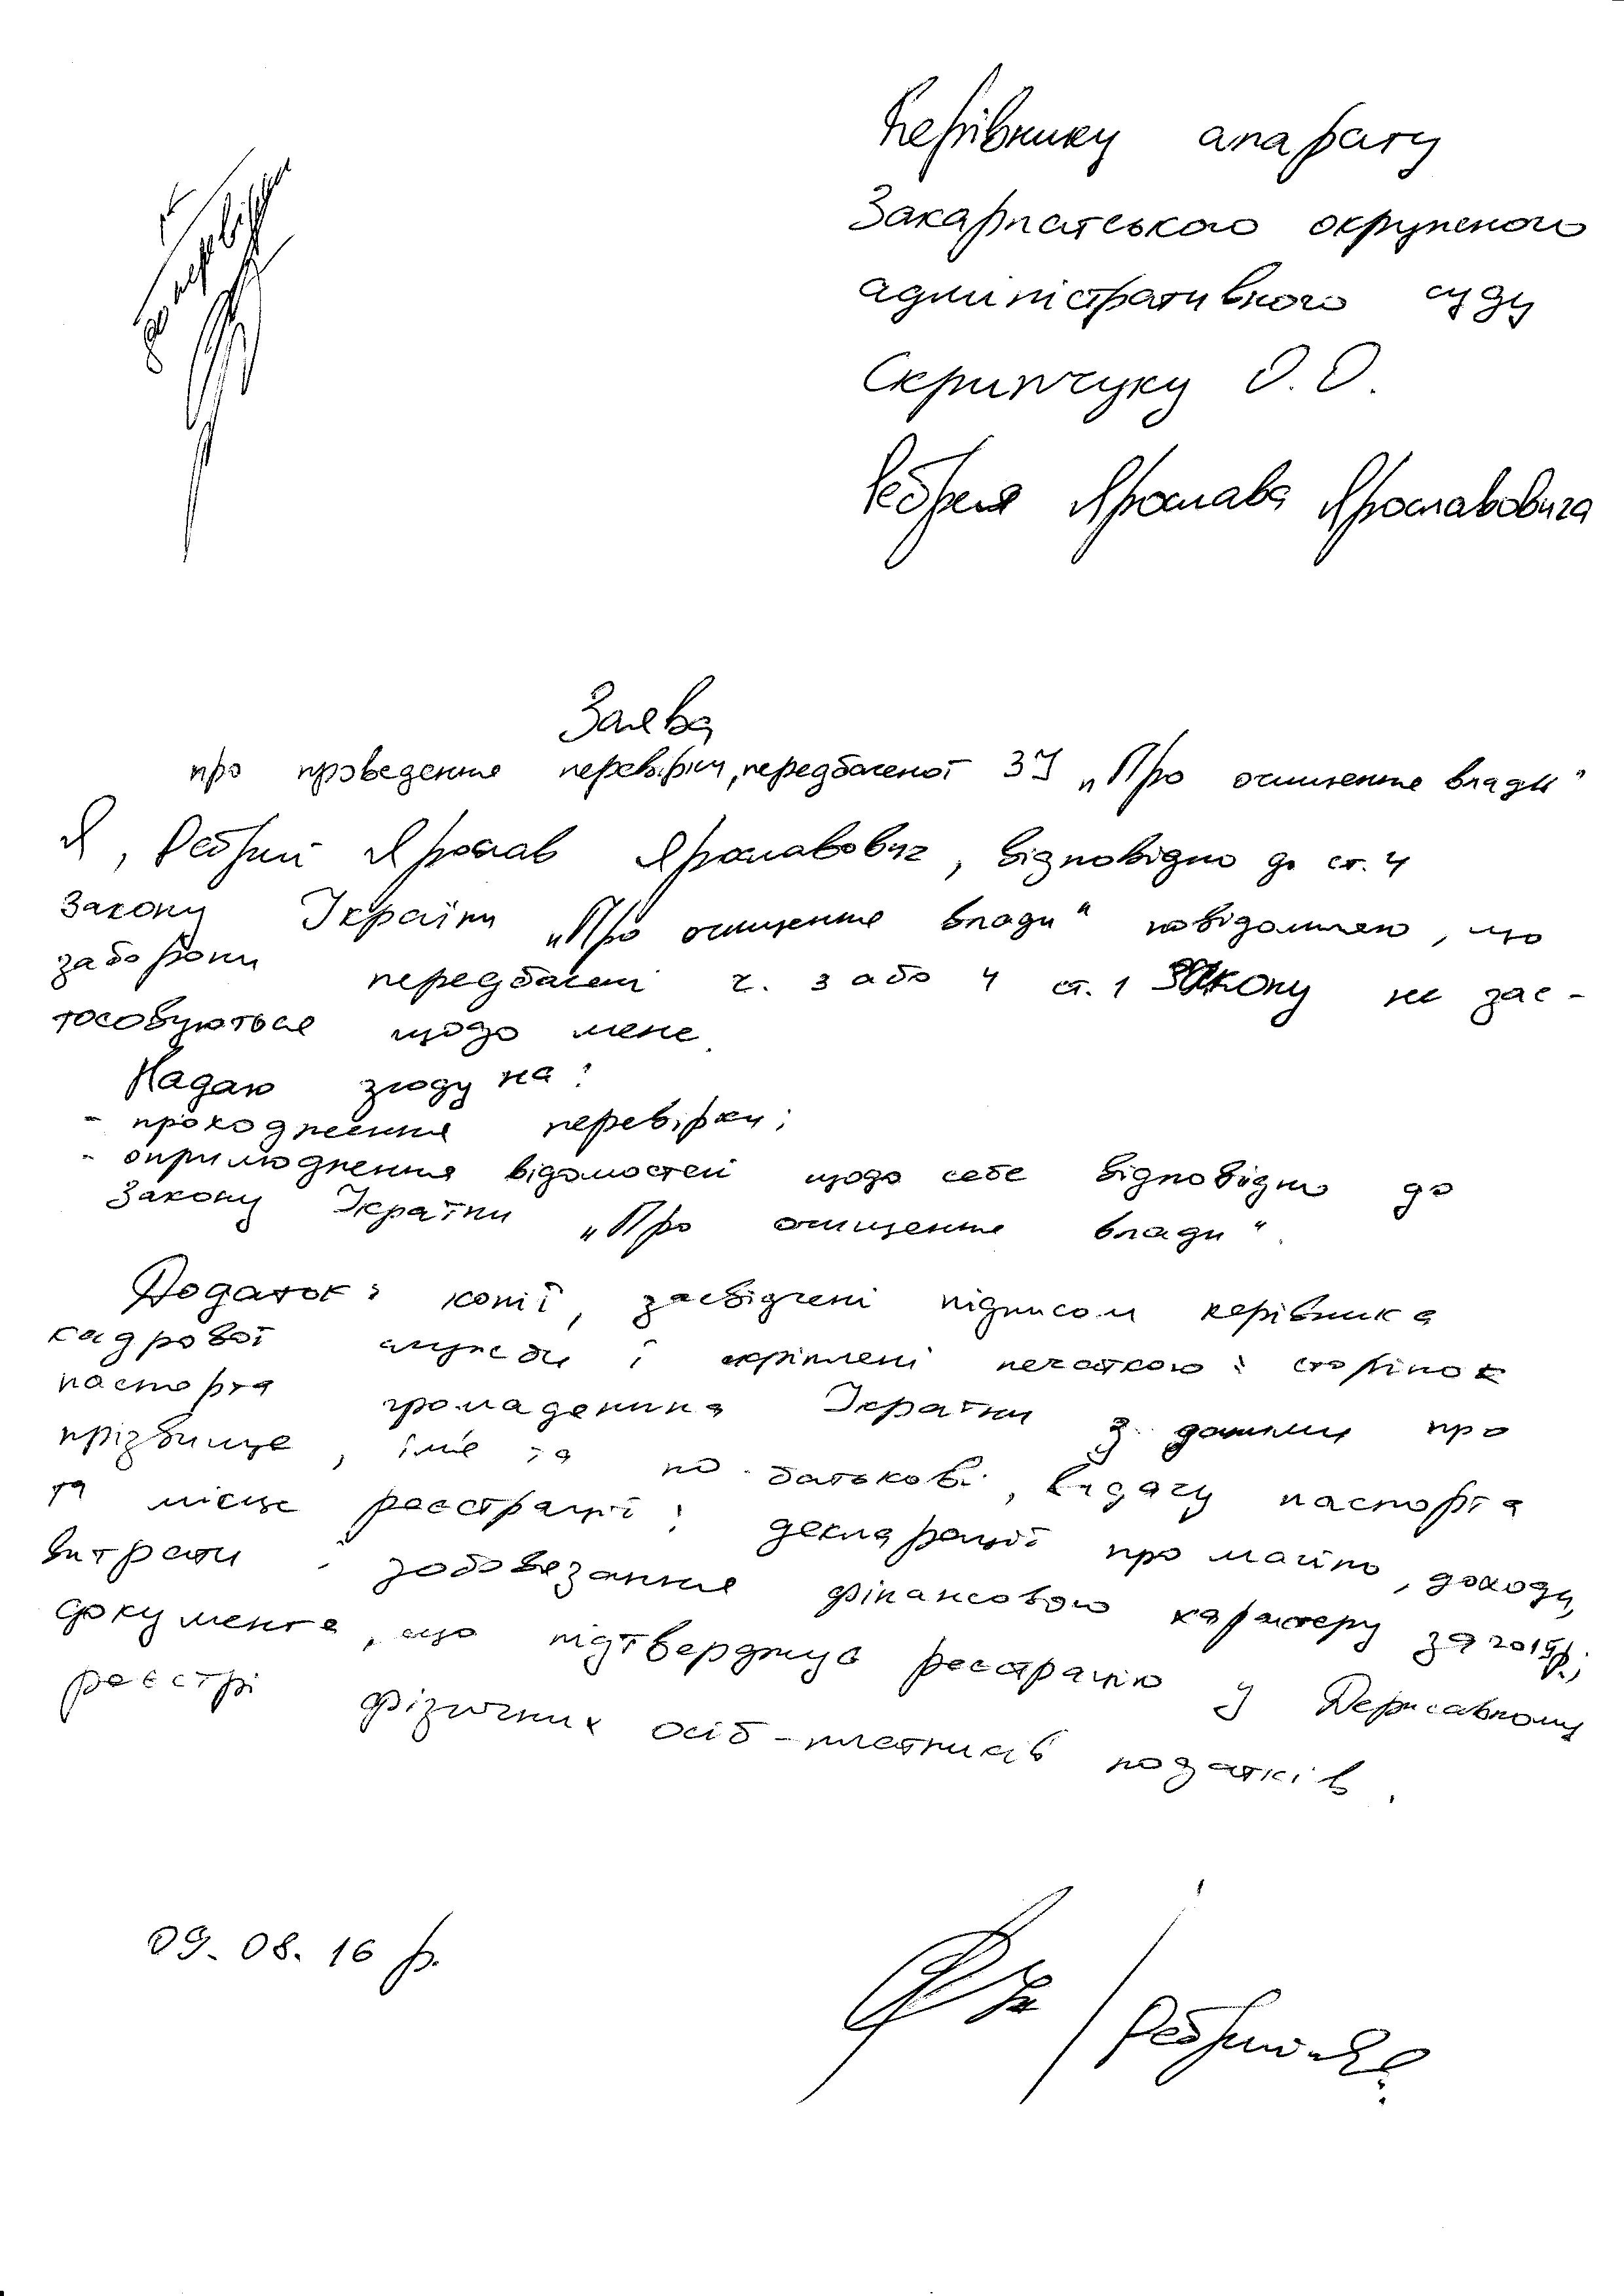 Керівнику апарату
Закарпатського окружного
адміністративного суду
Скрипчуку О.О.
Ребрея Ярослава Ярославовича
Заява
про проведення перевірки, передбаченої ЗУ „Про очищення влади"
Я, Ребрей Ярослав Ярославович, відповідно до ст. 4
Закону України „Про очищення влади" повідомляю, що
заборони передбачені ч. 3 або 4 ст. 1 Закону не зас-
тосовуються щодо мене.
Надаю згоду на:
- проходження перевірки;
- оприлюднення відомостей щодо себе відповідно до
Закону України „Про очищення влади".
Додаток: копії, засвідчені підписом керівника
кадрової служби і скріплені печаткою: сторінок
паспорта громадянина України з даними про
прізвище, ім'я та по-батькові, видачу паспорта
та місце реєстрації; декларації про майно, доходи,
витрати і зобов'язання фінансового характеру за 2015р.;
документа, що підтверджує реєстрацію у Державному
реєстрі фізичних осіб-платників податків.
09.08.16 р.
Ребрей Я.Я.